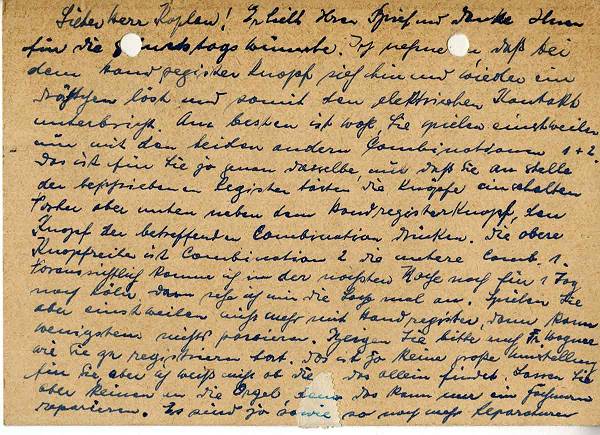 Lieber Herr Kaplan! Erhielt Ihren Brief und danke Ihnen
für die Geburtstagswünsche. Ich nehme an daß bei
dem Handregister Knopf sich hin und wieder ein
Drähtchen löst und somit den elektrischen Kontakt
unterbricht. Am besten ist wohl, Sie spielen einstweilen
nur mit den beiden andern Combinationen 1 + 2.
Das ist für Sie ja ganz dasselbe, nur daß Sie an stelle
der Register tasten die Knöpfe einschalten
aber unten neben dem Handregisterknopf, den
Knopf der betreffenden Combination drücken. Die obere
Knopfreihe ist Combination 2 die untere Comb. 1.
Voraussichtlich komme ich in der nächsten Woche noch für 1 Tag
nach Köln, dann sehe ich mir die Sach mal an. Spielen Sie
aber einstweilen nicht mehr mit Handregister, dann kann
wenigstens nichts passieren. Zeigen Sie bitte auch Fr. Wagner
wie Sie zu registrieren hat. Das ist ja keine große Umstellung
für Sie, aber ich weiß nicht ob die das allein findet. Lassen Sie
aber keinen an die Orgel, denn das kann nur ein Fachmann
reparieren. Es sind ja sowie so noch mehr Reparaturen